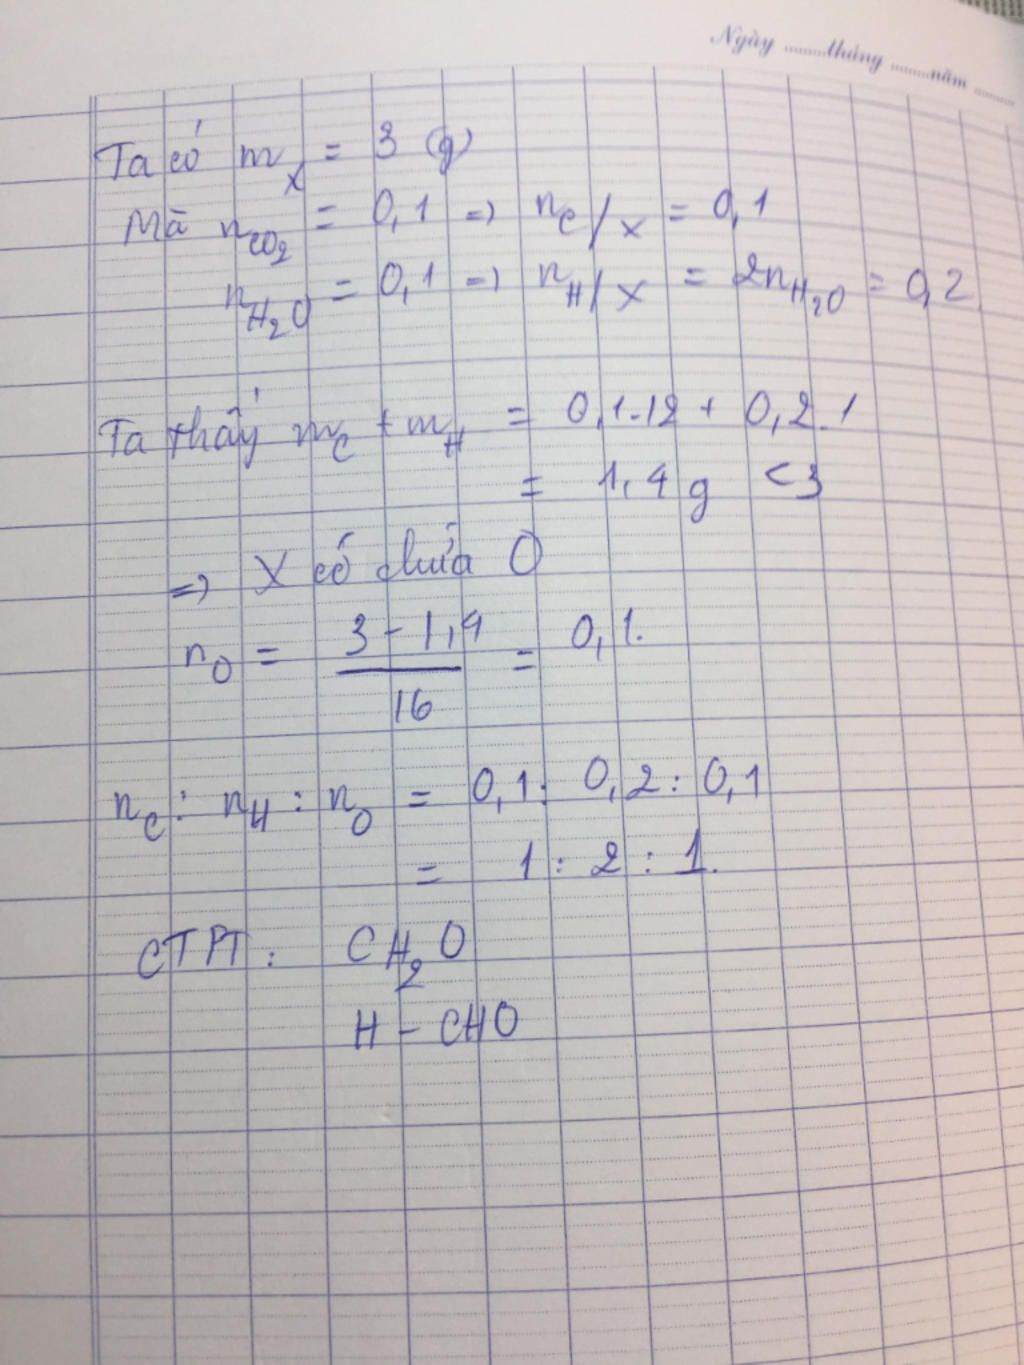 Ngày ........tháng ........năm ........
Ta có m_X = 3 (g)
Mà n_CO₂ = 0,1 => n_C/X = 0,1
n_H₂O = 0,1 => n_H/X = 2n_H₂O = 0,2
Ta thấy m_C + m_H = 0,1.12 + 0,2.1
= 1,4 g < 3
=> X có chứa O
n_O = (3 - 1,4)/16 = 0,1.
n_C : n_H : n_O = 0,1 : 0,2 : 0,1
= 1 : 2 : 1.
CTPT : CH₂O
H - CHO